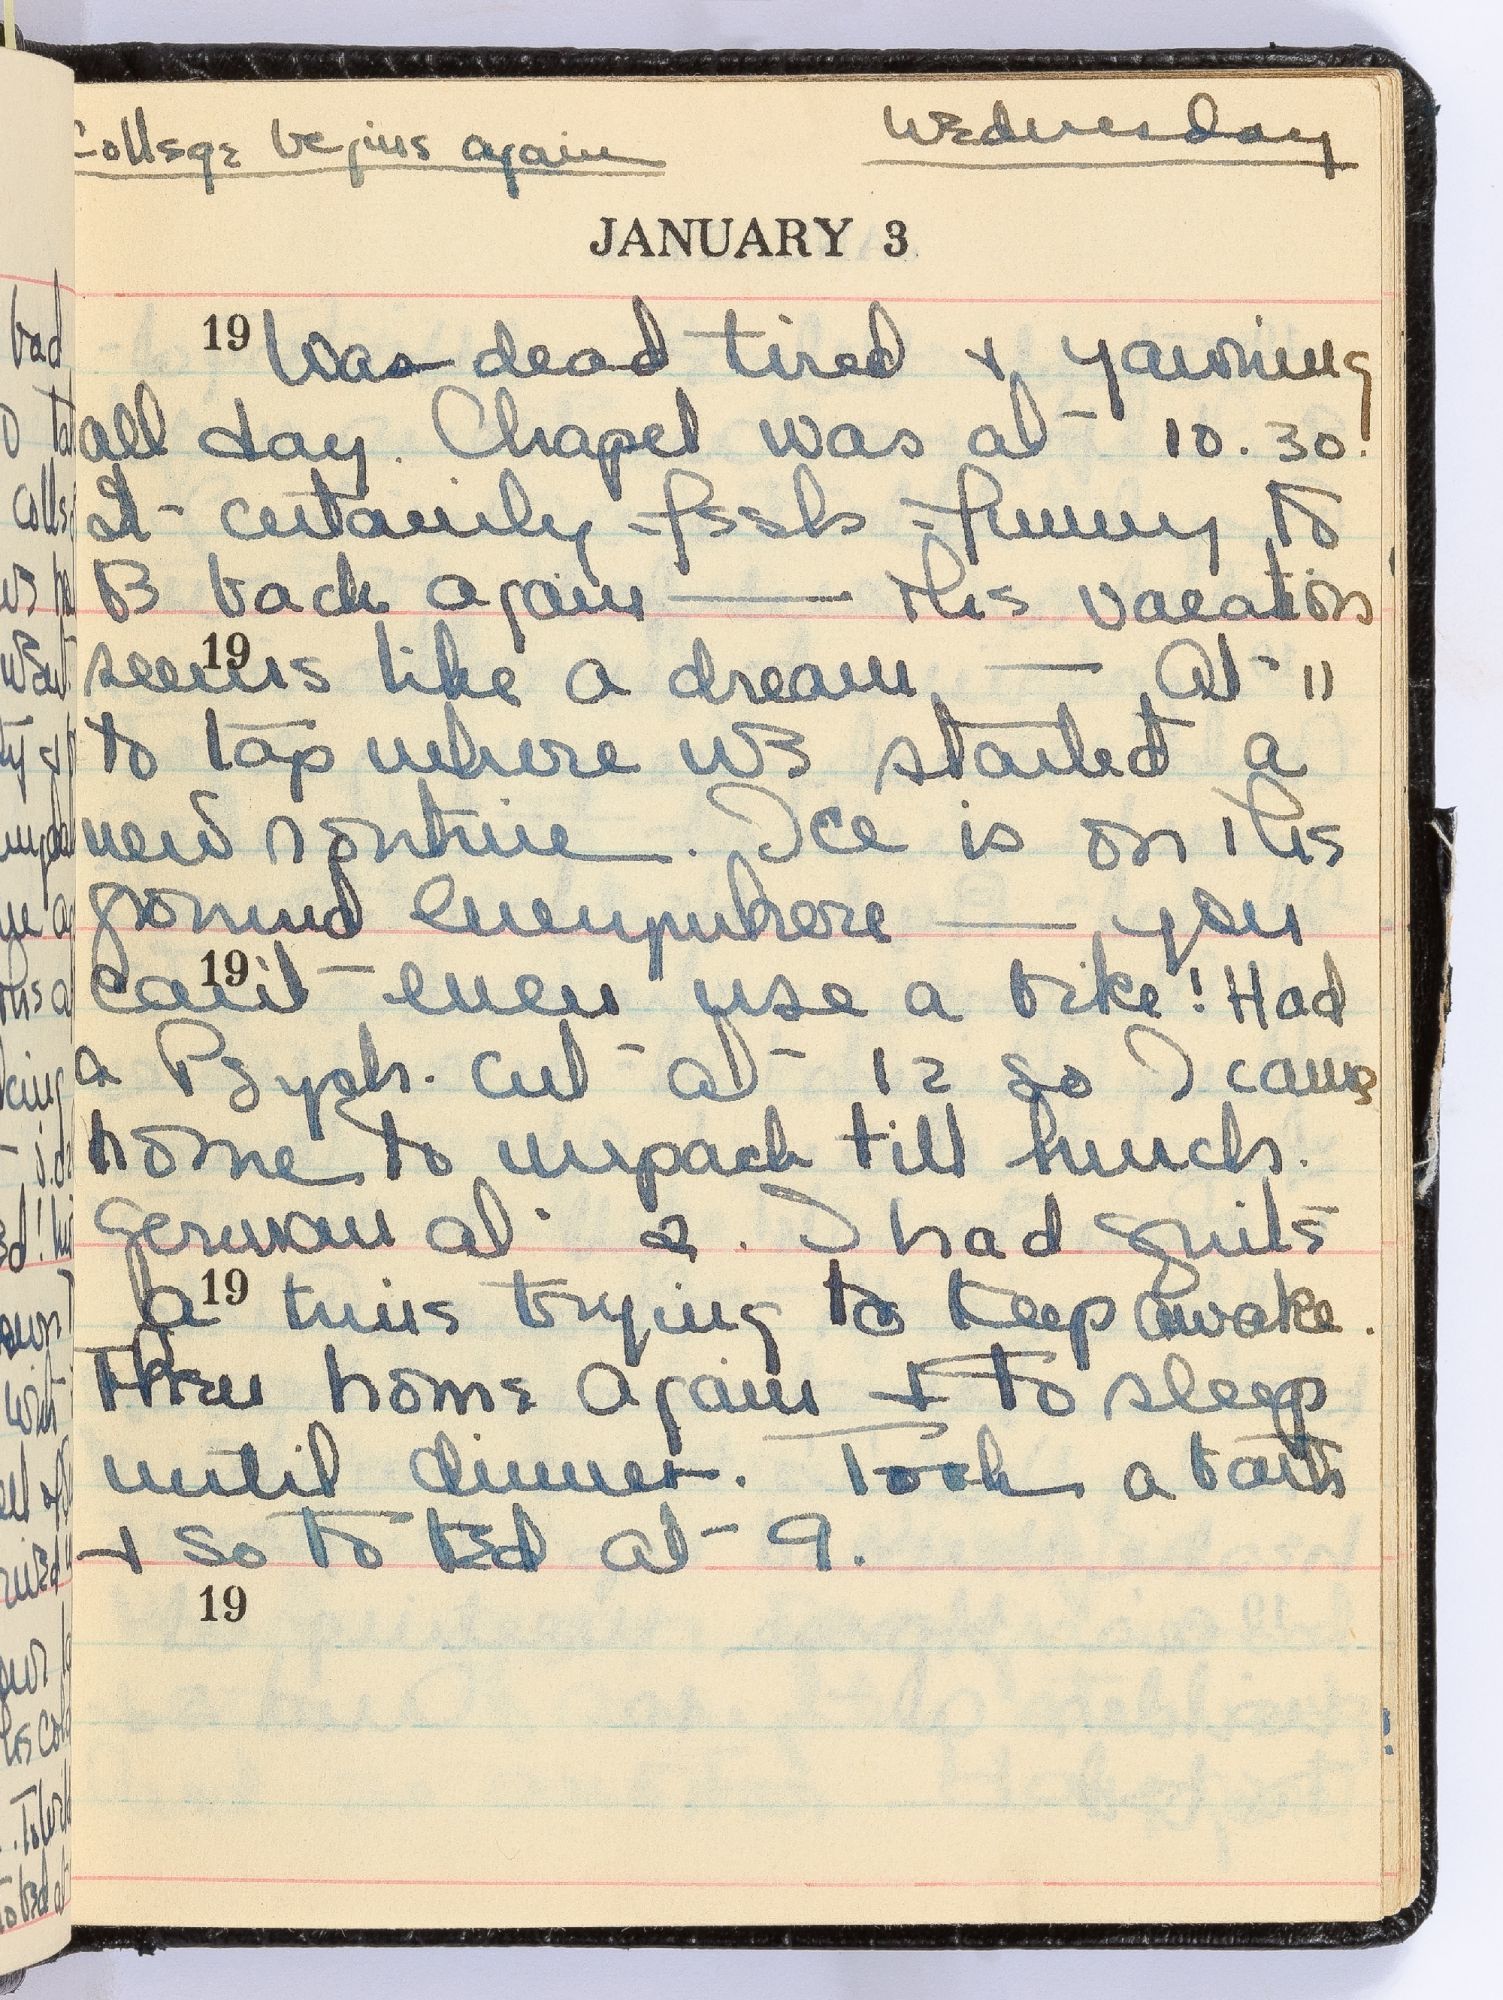 College begins again Wednesday
JANUARY 3
19 Was dead tired & yawning
all day. Chapel was at 10.30.
It certainly feels funny to
B back again — the vacation
19
seems like a dream — At 11
to tap where we started a
new routine. Ice is on the
ground everywhere — you
19
can't even use a bike! Had
a Psych. cut at 12 so I came
home to unpack till lunch.
German at 2. I had quite
19
a time trying to keep awake.
Then home again & to sleep
until dinner. Took a bath
& so to bed at 9.
19